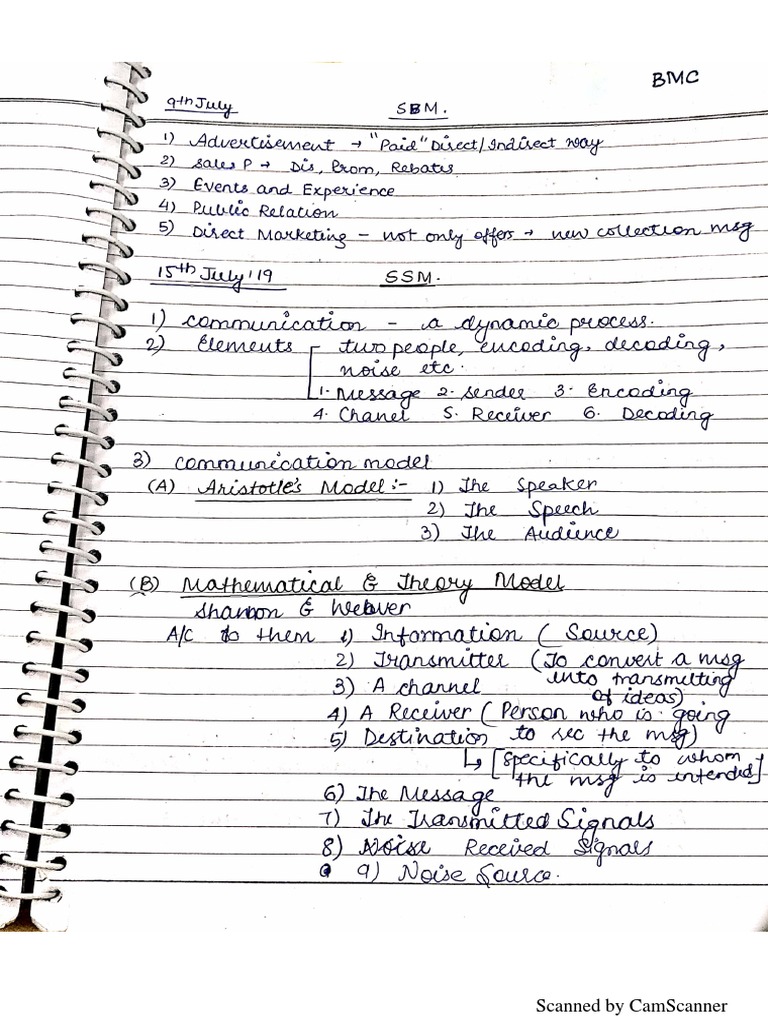 BMC
9th July SBM.
1) Advertisement → "Paid" Direct/Indirect way
2) Sales P → Dis, Prom, Rebates
3) Events and Experience
4) Public Relation
5) Direct Marketing - not only offers → new collection msg
15th July '19 SSM.
1) Communication - a dynamic process.
2) Elements two people, encoding, decoding,
noise etc.
1. Message 2. Sender 3. Encoding
4. Chanel 5. Receiver 6. Decoding
3) Communication model
(A) Aristotle's Model:- 1) The Speaker
2) The Speech
3) The Audience
(B) Mathematical & Theory Model
Shannon & Webver
A/C to them 1) Information (Source)
2) Transmitter (To convert a msg
into transmitting
3) A channel of ideas)
4) A Receiver (Person who is going
5) Destination to rec the msg)
↳ [Specifically to whom
the msg is intended]
6) The Message
7) The Transmitted Signals
8) Noise Received Signals
9) Noise Source.
Scanned by CamScanner